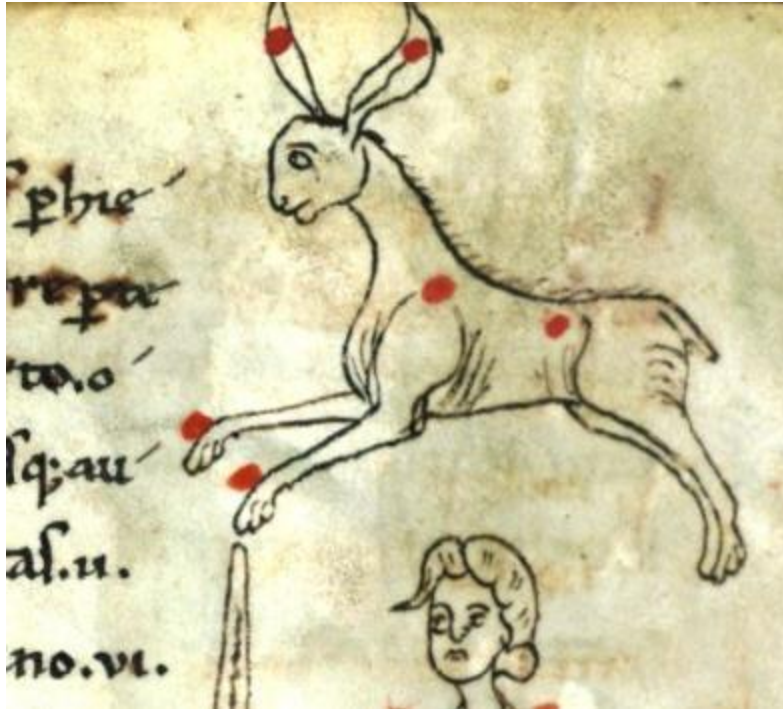 phie
re pta
to.o
sq; au
as.u.
no.vi.